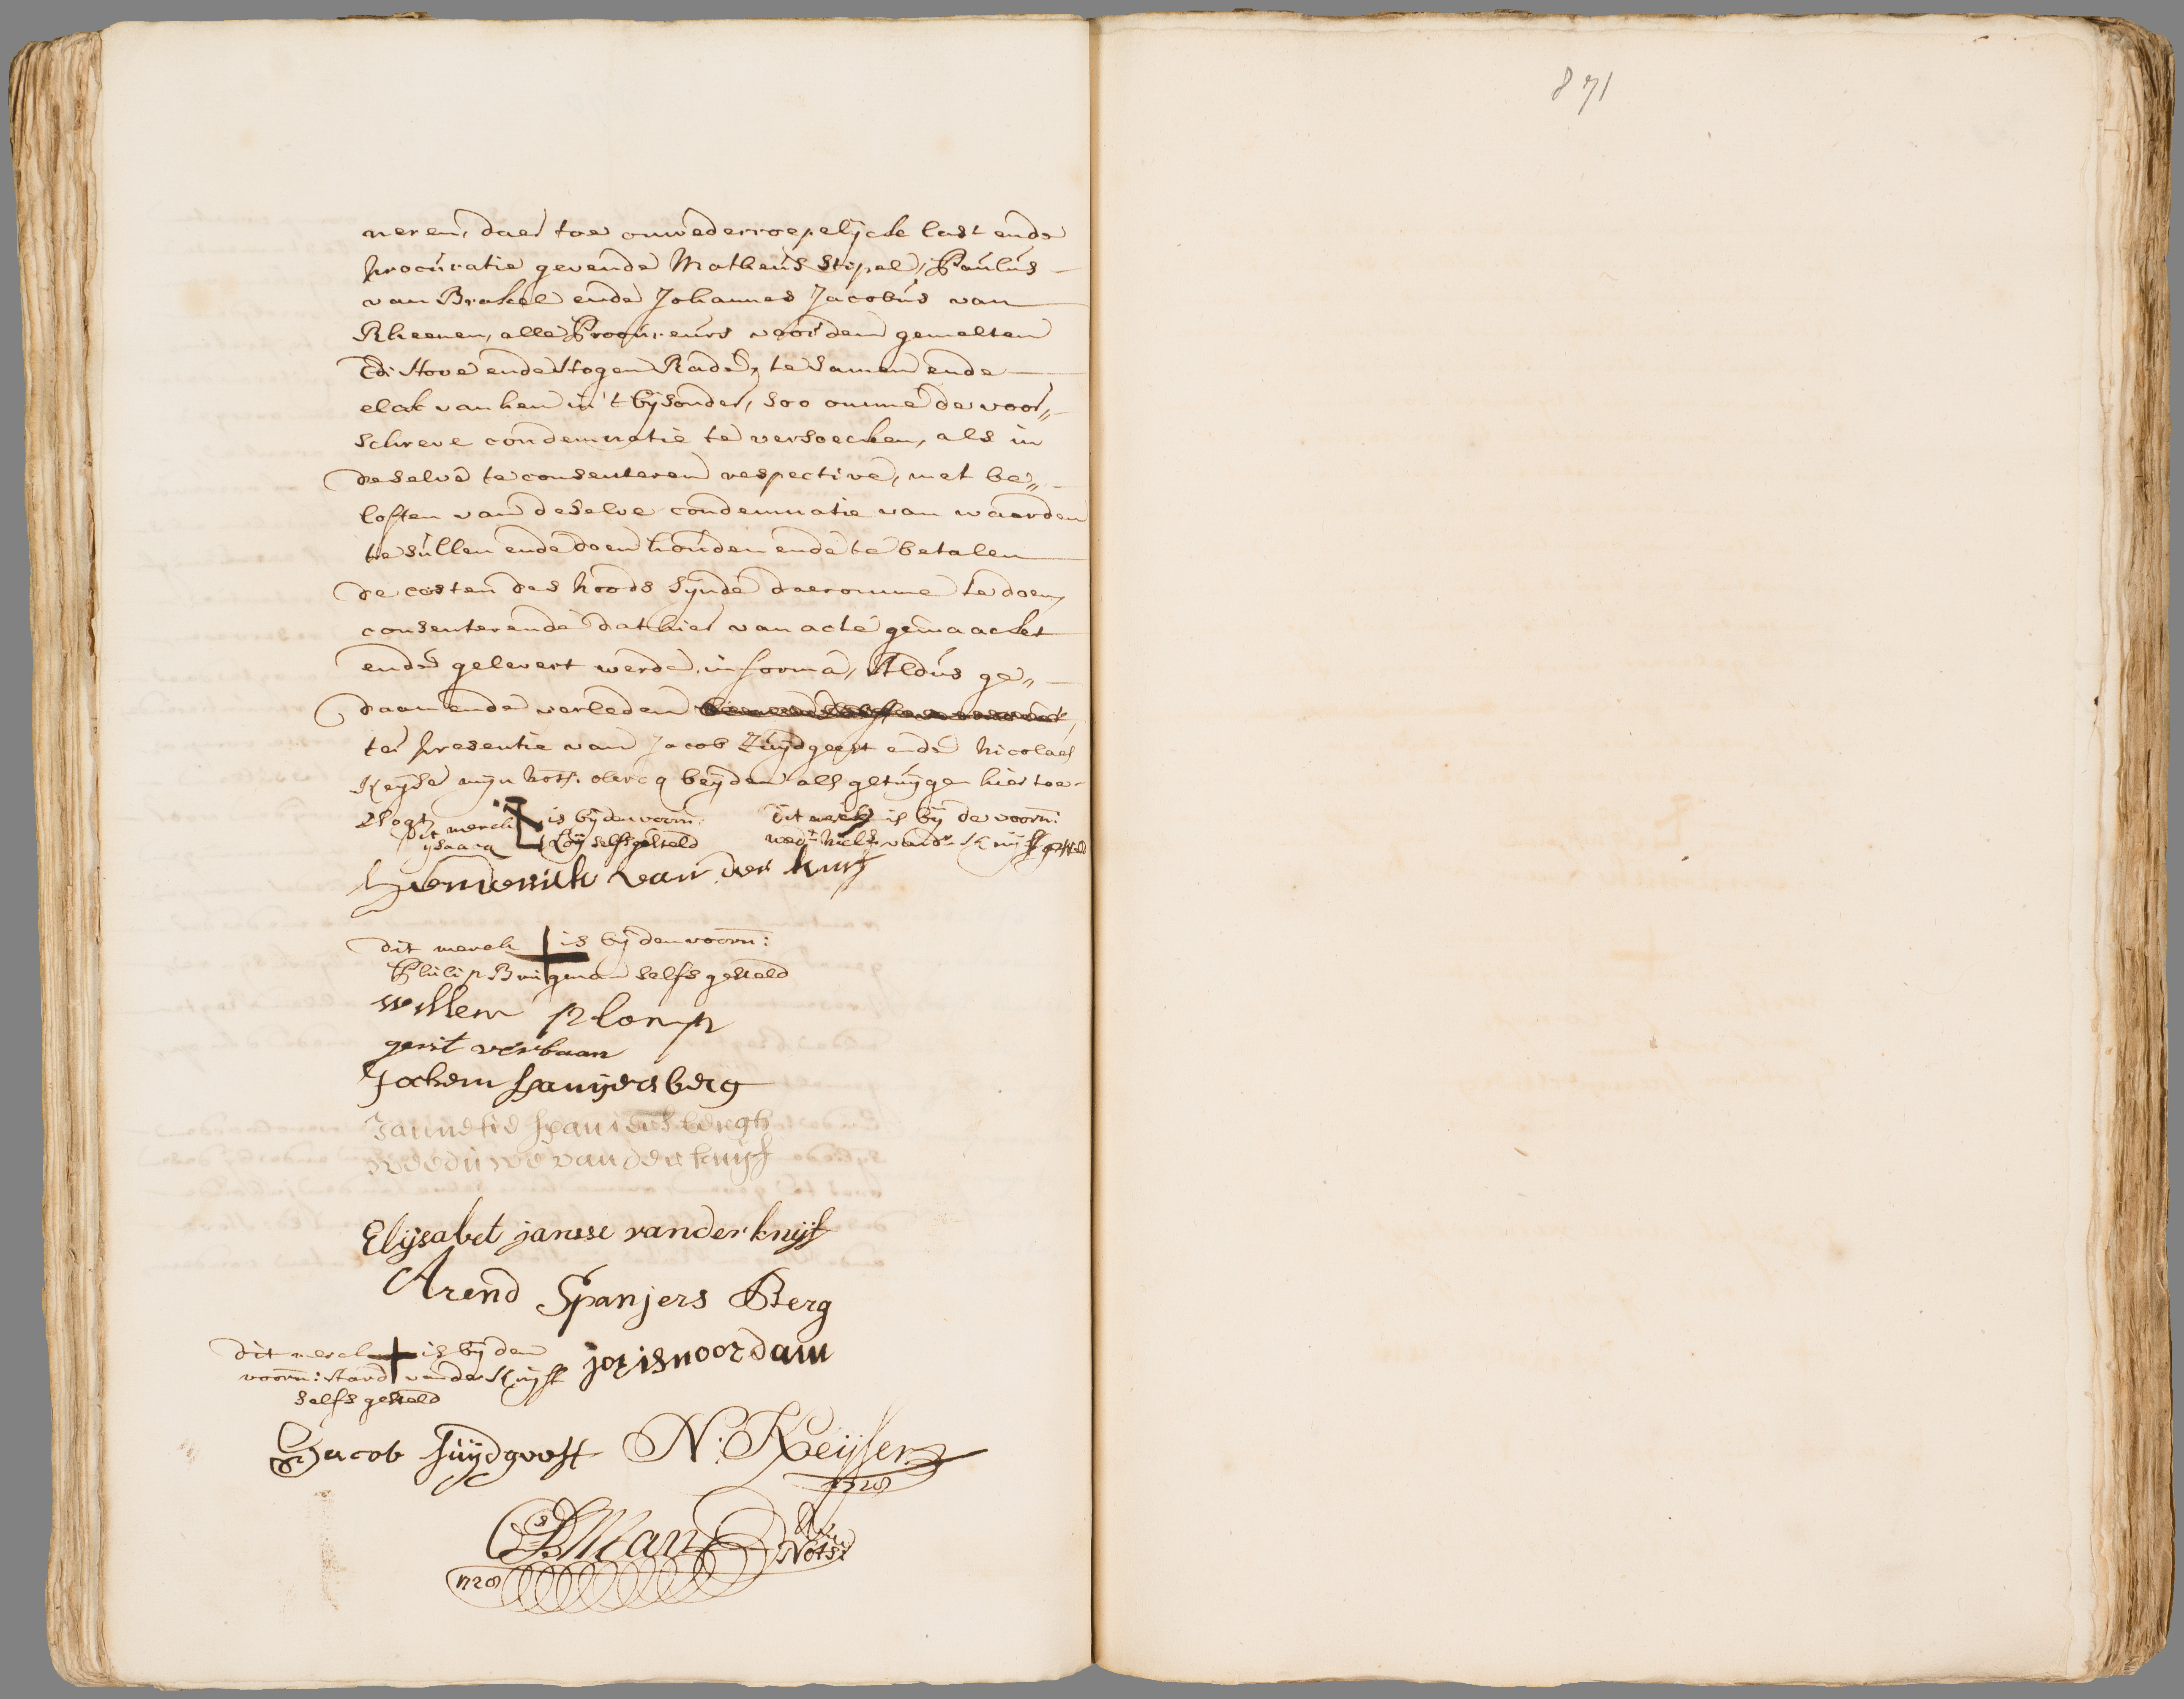 871
neren, daer toe onwederroepelijcke last ende
procúratie gevende Matheús Stipel, Paúlús
van Brakel ende Johannes Jacobús van
Rheenen, alle Procúreurs voor den gemelten
Ed: Hove ende Hogen Rade, te samen ende
elck van hen in 't bijsonder, soo omme de voor„
schreve condemnatie te versoecken, als in
deselve te consenteren respective, met be„
loften van deselve condemnatie van waarden
te súllen ende doen houden ende te betalen
de costen des noods sijnde daeromme te doen,
consenterende dat hier van acte gemaackt
ende gelevert werde in forma, Aldús ge„
daan ende verleden
ter presentie van Jacob Zuijdgeest ende Nicolaes
Keijser mijn nots. clercq beijden als getuijgen hier toe
dit merck is bij den voorn:
ijsaacq selfs gesteld
Dit merck is bij de voorn:
wede: Niels vandr. Knijff gesteld
henderick van der knijf
dit merck is bij den voorn:
Philip Brúijgman selfs gesteld
willem plomp
gerit verbaan
Jochem spanijersberg
Jannetie spaniersbergh
weduwe van der knijf
Elijsabet jansse vander knijf
Arend Spanjers Berg
dit merck is bij den
voorn: Aard vander Knijff
selfs gesteld
joris noordam
Jacob súijdgeest
N: Keijser
1728
Man
Nots:
1728